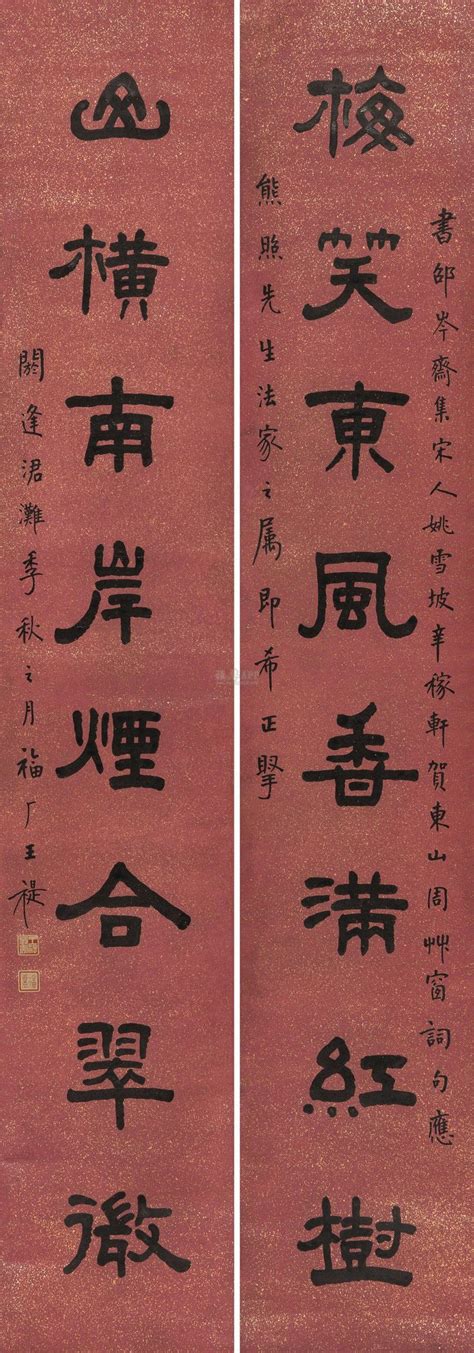 梅笑東風香滿紅樹
書邵岑齋集宋人姚雪坡辛稼軒賀東山周艸窗詞句應
熊照先生法家之属即希正擘
山橫南岸煙合翠微
閼逢涒灘季秋之月福厂王禔